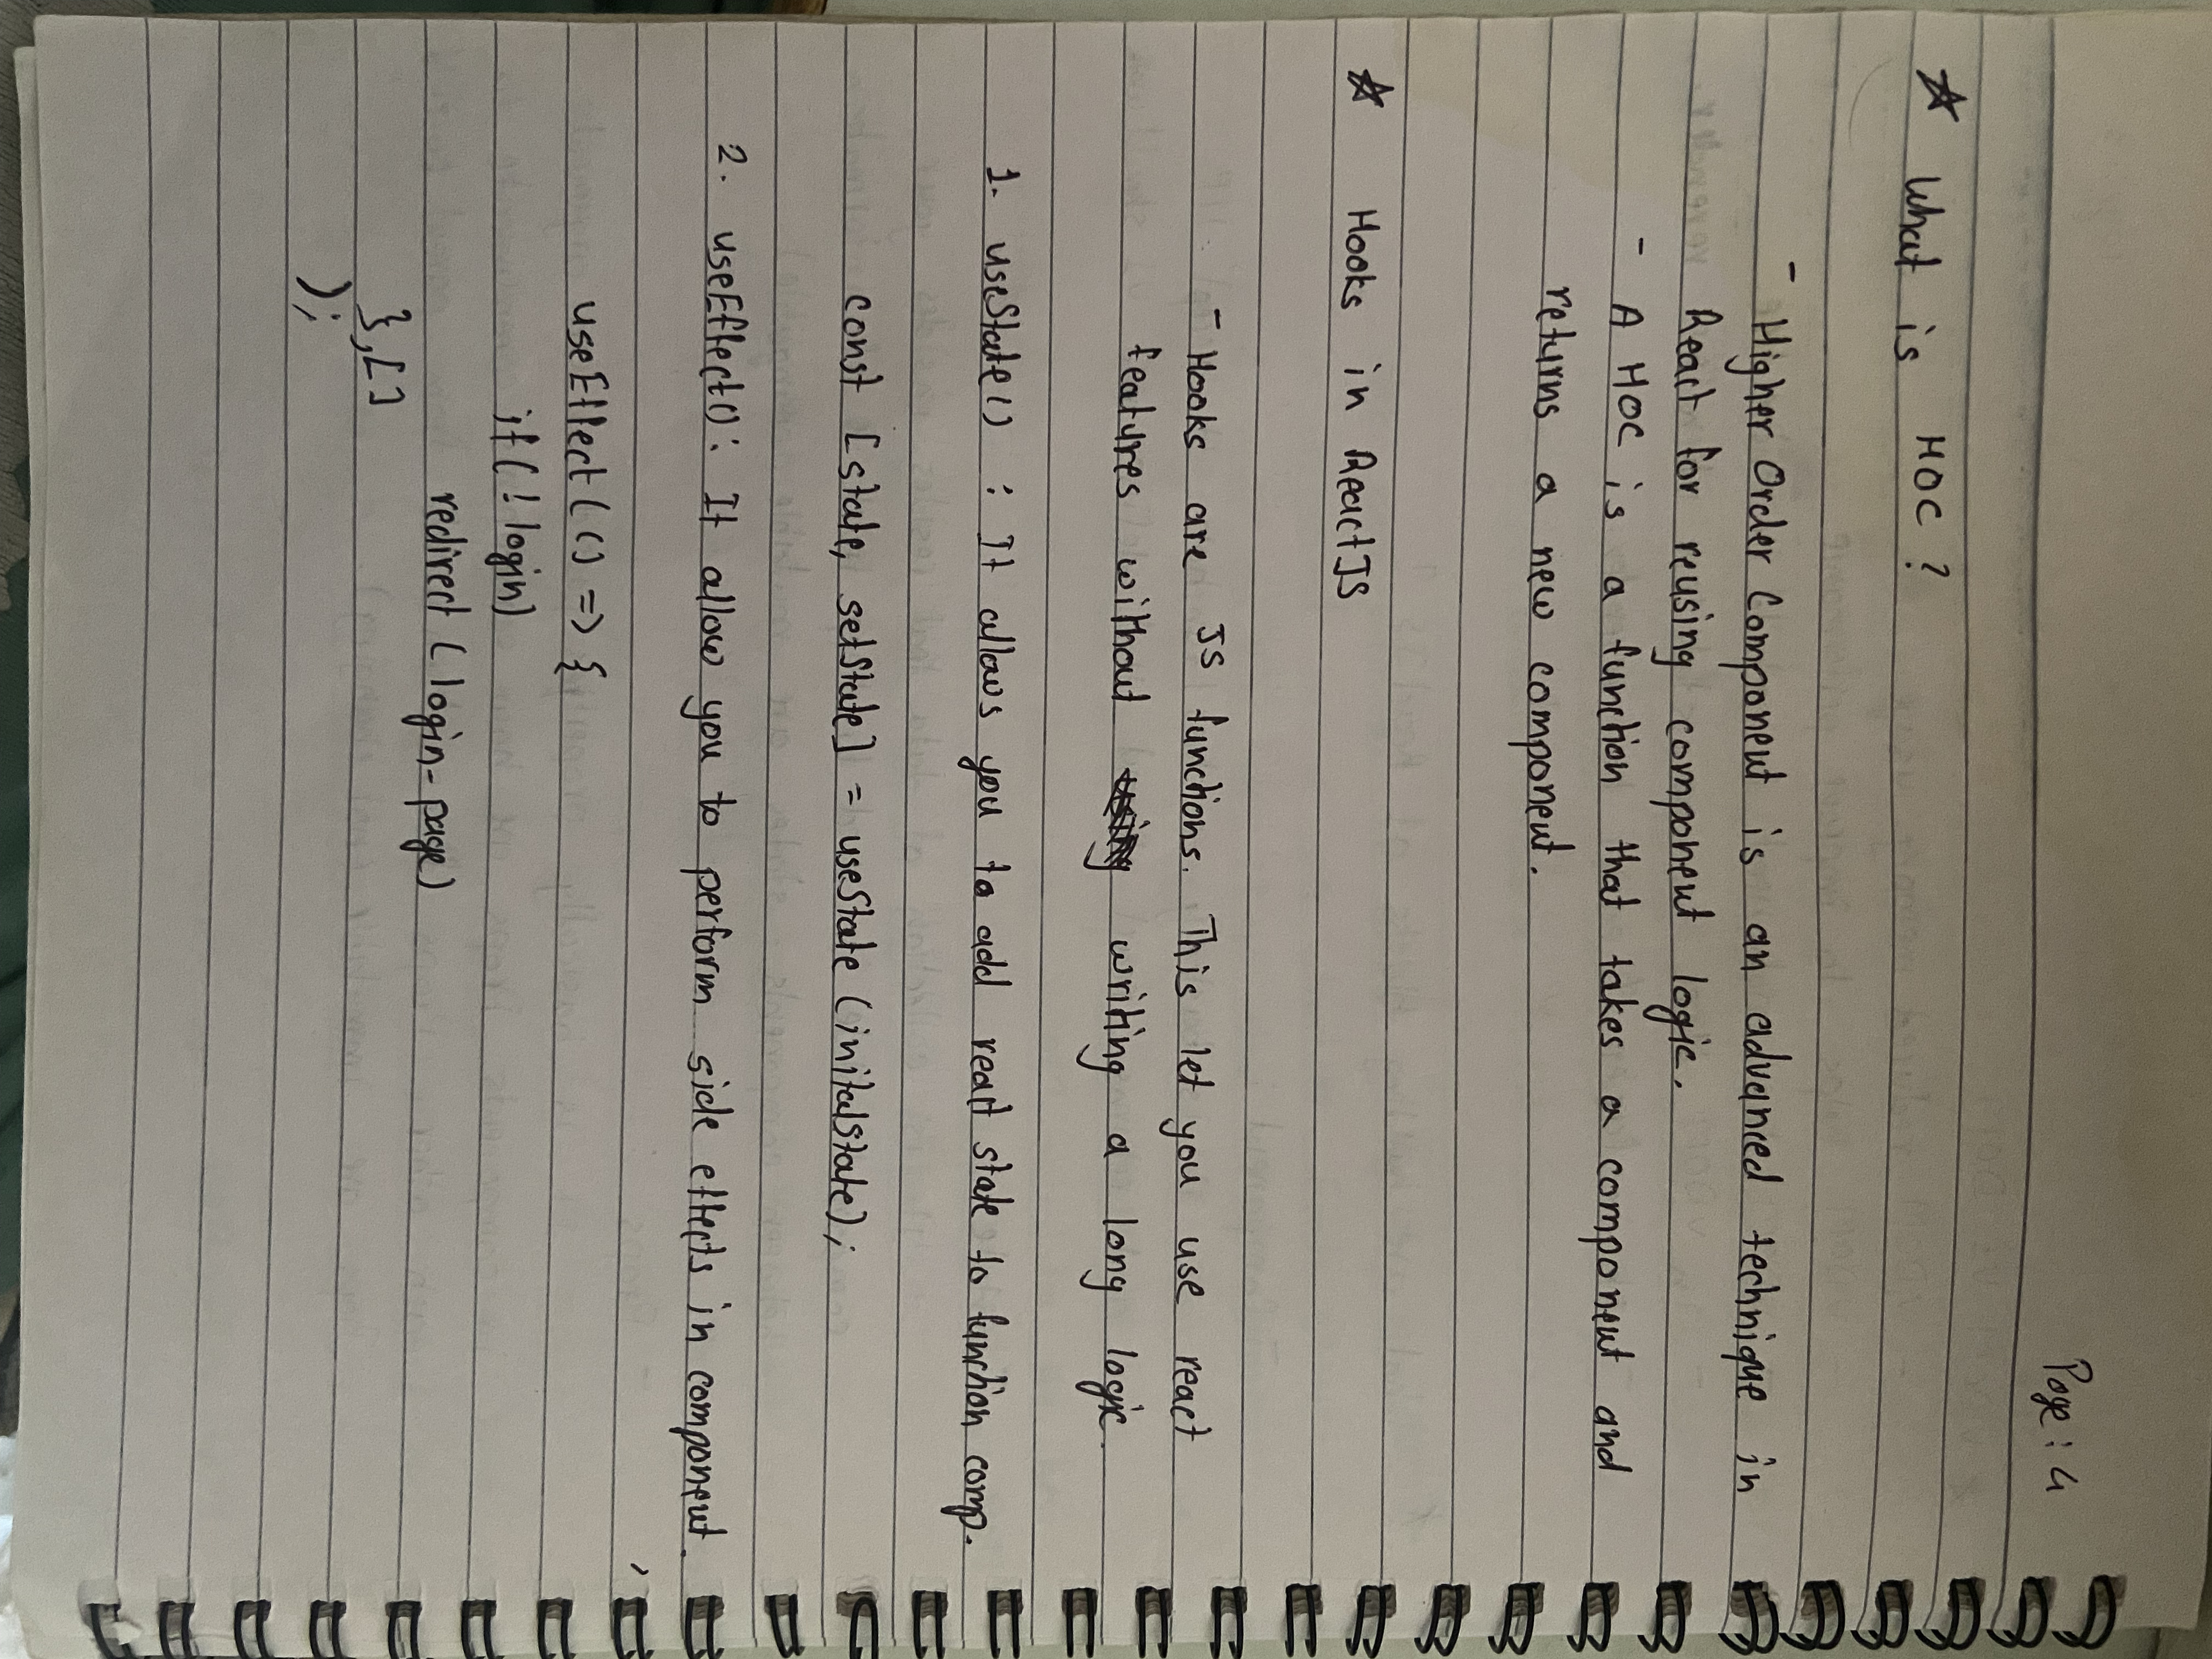 Page : 4
☆ What is HOC ?
- Higher Order Component is an advanced technique in
React for reusing component logic.
- A HOC is a function that takes a component and
returns a new component.
☆ Hooks in ReactJS
- Hooks are JS functions. This let you use react
features without using writing a long logic.
1. useState() : It allows you to add react state to function comp.
const [state, setState] = useState (initalState);
2. useEffect() : It allow you to perform side effects in component.
useEffect(() => {
if( ! login)
redirect ( login-page)
},[]
);